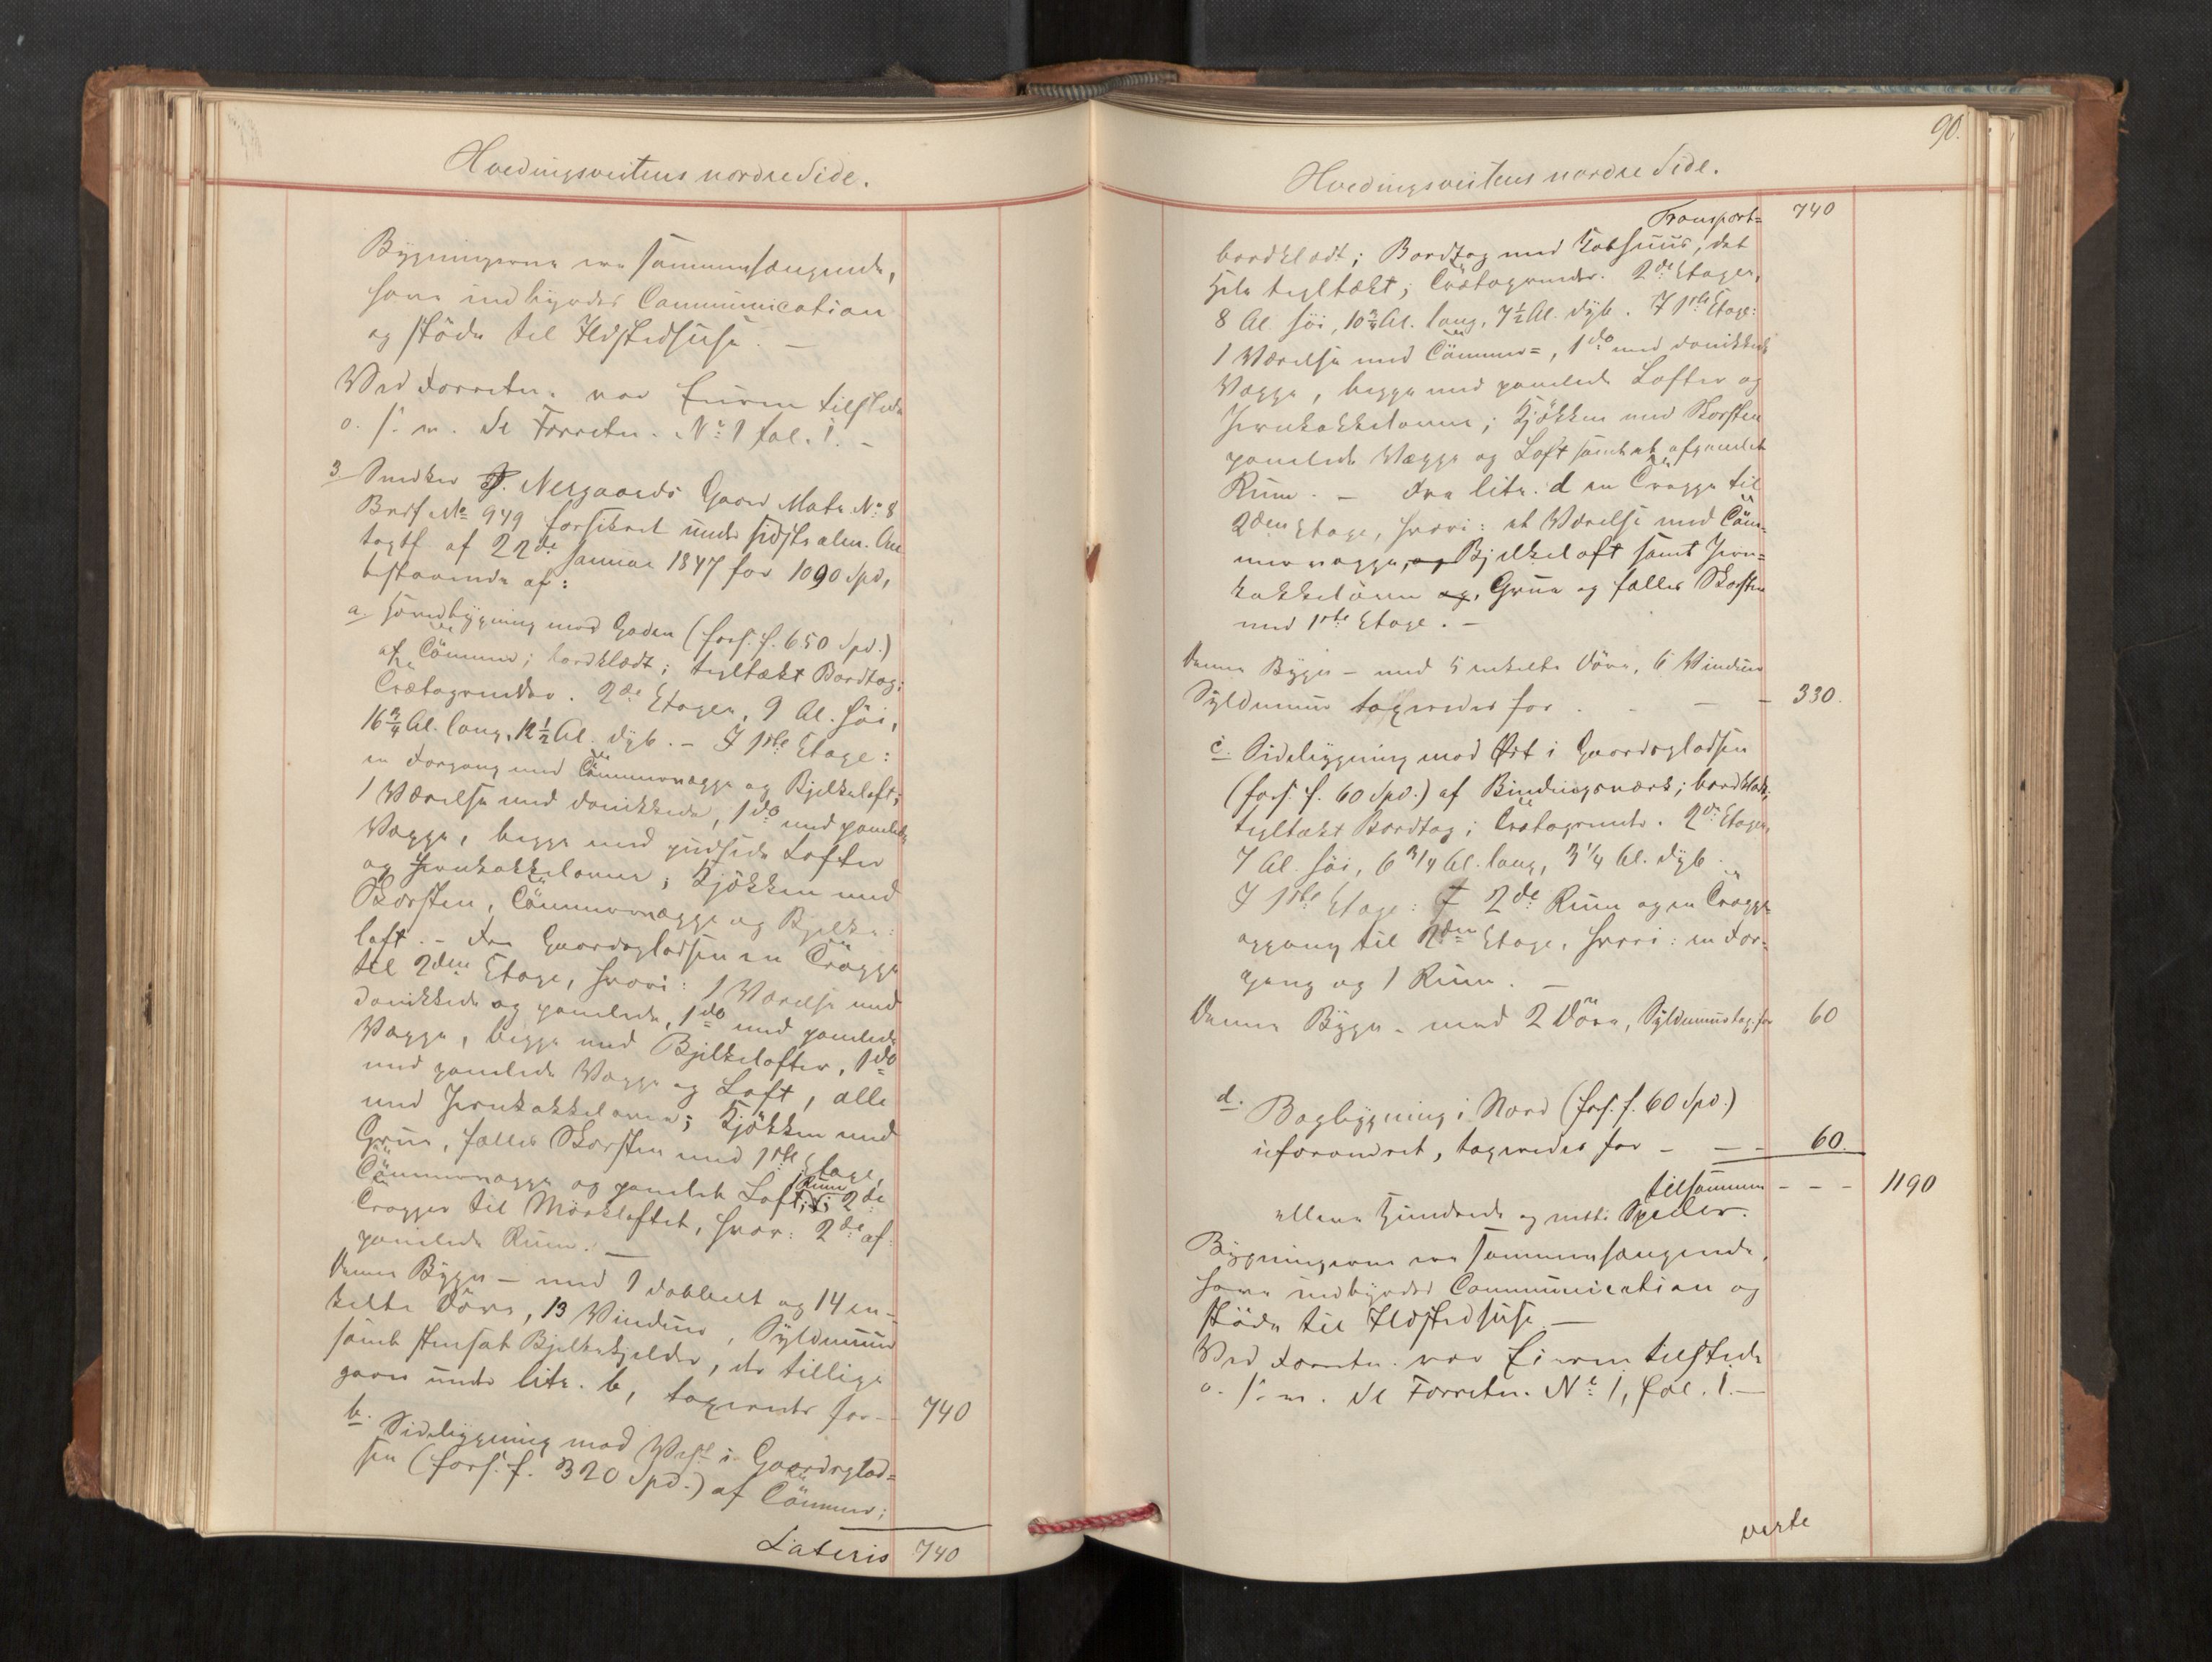 Hvedingsveitens nordre Side.
Bygningerne ere sammenhængende,
have indbyrdes Communication
og støde til Ildstedhuse. —
Ved Forretn. var Eieren tilstede
o. s. v. se Forretn. No 1 fol. 1. —
3 Snedker P. Nergaards Gaard Matr. No 8
Brdf No 949 forsikret under sidste alm. Om
taxtf. af 22de Januar 1847 for 1090 Spd,
bestaaende af:
a. Hovedbygning mod Gaden (fors. f. 650 Spd.)
af Tømmer; bordklædt; tegltækt Bordtag;
Trætagrender. 2de Etager, 9 Al. høi,
16 3/4 Al. lang, 12 1/2 Al. dyb. – I 1ste Etage:
en Forgang med Tømmervægge og Bjelkeloft;
1 Værelse med donikkede, 1 do med panelede
Vægge, begge med gudsede Lofter
og Jernkakkelovne; Kjøkken med
Skorsten, Tømmervægge og Bjelke-
loft. – Fra Gaardspladsen en Trappe
til 2den Etage, hvori: 1 Værelse med
donikkede og panelede, 1 do med panelede
Vægge, begge med Bjelkelofter, 1 do
med panelede Vægge og Loft, alle
med Jernkakkelovne; Kjøkken med
Grue, fælles Skorsten med 1ste Etage,
Tømmervægge og panelet Loft; 1 Rum; 2de
Trapper til Mørkloftet, hvor: 2de af-
panelede Rum. —
Denne Bygn – med 1 dobbelt og 14 en-
kelte Døre, 13 Vinduer, Syldmuur
samt steensat Bjelkekjelder, der tillige
gaar under litr. b, taxeredes for – – 740
b. Sidebygning mod Vest i Gaardsplad-
sen (fors. f. 320 Spd.) af Tømmer;
Lateris 740
90.
Hvedingsveitens nordre Side.
Transport= 740
bordklædt; Bordtag med Kobhuus, det
Hele tegltækt; Trætagrender. 2de Etager,
8 Al høi, 10 3/4 Al. lang, 7 1/2 Al. dyb. I 1ste Etage:
1 Værelse med Tømmer=, 1 do med donikkede
Vægge, begge med panelede Lofter og
Jernkakkelovne; Kjøkken med Skorsten
panelede Vægge og Loft samt et afpanelet
Rum. – Fra litr. d en Trappe til
2den Etage, hvori: et Værelse med Tøm-
mervægge, og Bjelkeloft samt Jern=
kakkelovn og, Grue og fælles Skorsten
med 1ste Etage. –
Denne Bygn – med 5 enkelte Døre, 6 Vinduer
Syldmuur taxeredes for . - — – 330.
c. Sidebygning mod Øst i Gaardspladsen
(fors. f. 60 Spd.) af Bindingsværk; bordklædt;
tegltækt Bordtag; Trætagrender. 2de Etager,
7 Al. høi, 6 3/4 Al. lang, 3 1/4 Al. dyb.
I 1ste Etage: 2de Rum og en Trappe-
opgang til 2den Etage, hvori: en For-
gang og 1 Rum. —
Denne Bygn – med 2 Døre, Syldmuur tax. for 60
d. Bagbygning i Nord (fors. f. 60 Spd.)
uforandret, taxeredes for – — – 60.
tilsammen – – – 1190
elleve Hundrede og nitti Species.
Bygningerne ere sammenhængende,
have indbyrdes Communication og
støde til Ildstedhuse —
Ved Forretn. var Eieren tilstede
o. s. v. se Forretn. No 1, fol. 1. —
verte